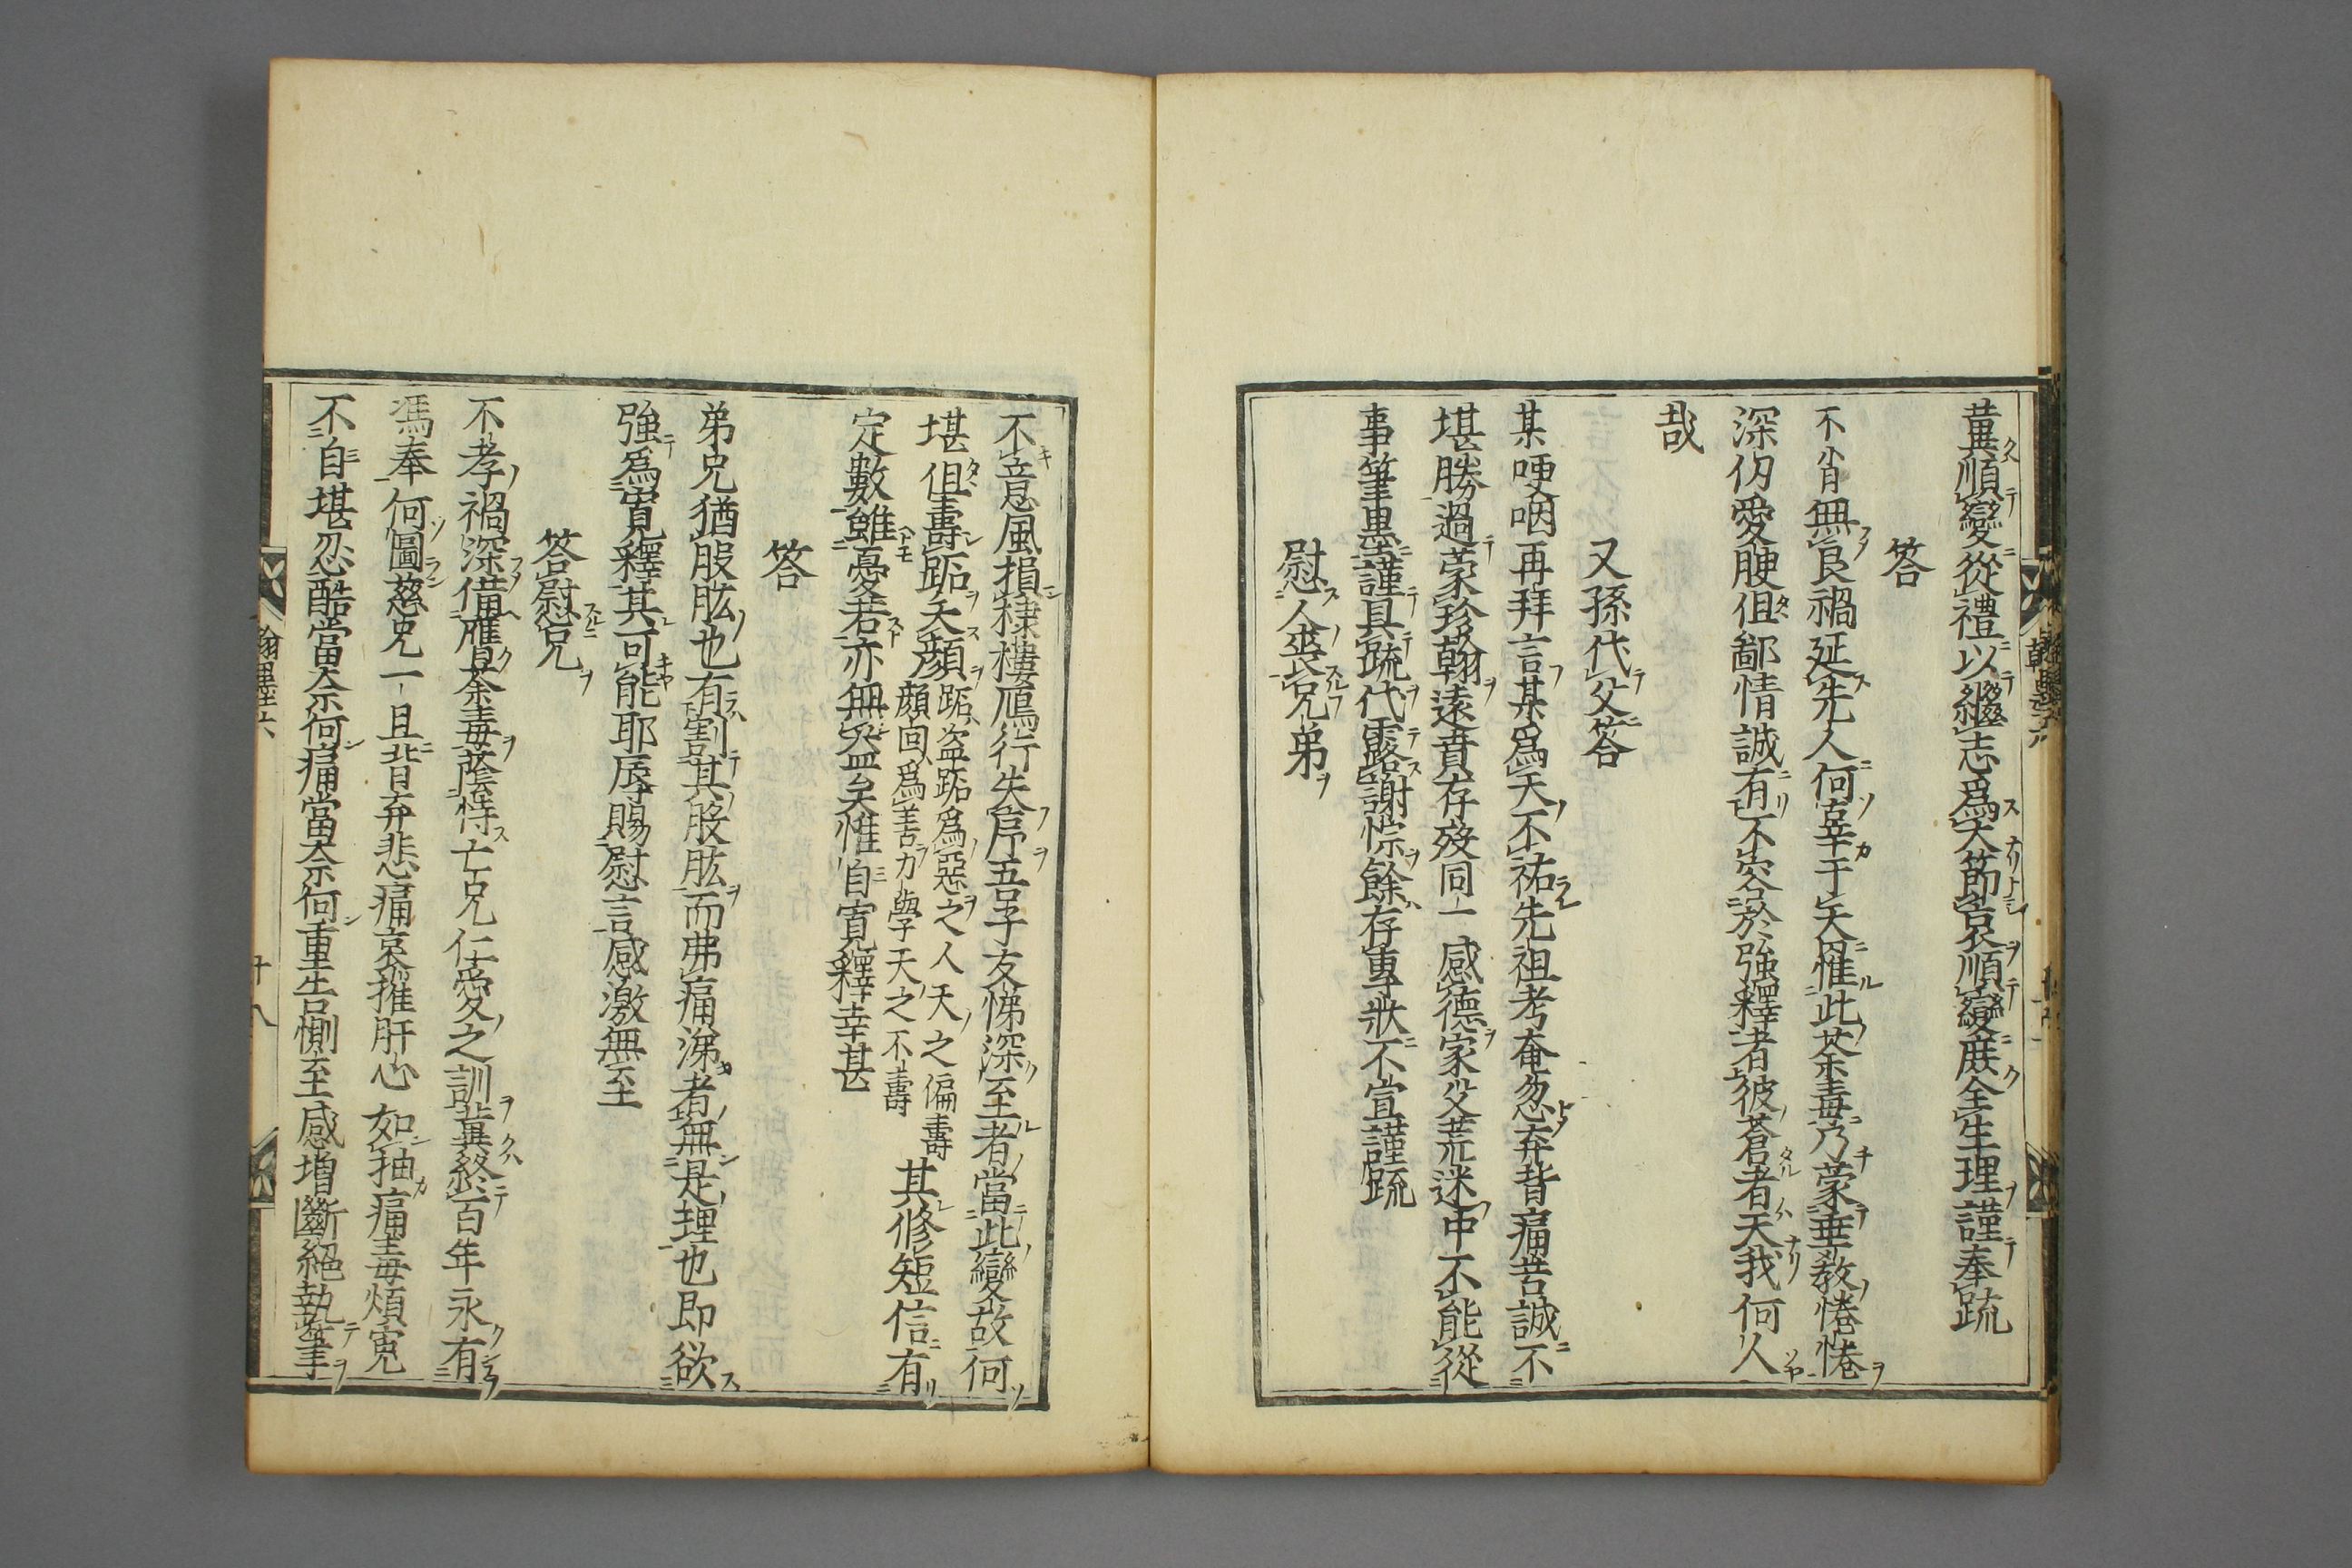 冀順變從禮以繼志爲大節哀順變庶全生理謹奉疏
答
不肖無良禍延先人何辜于天罹此荼毒乃蒙垂教惓惓
深仞愛腴但鄙情誠有不容於強釋者彼蒼者天我何人
哉
又孫代父答
某哽咽再拜言某爲天不祐先祖考奄忽弃背痛苦誠不
堪勝過蒙珍翰遠賁存歿同一感德家父荒迷中不能從
事筆墨謹具疏代露謝悰餘存專狀不宣謹疏
慰人喪兄弟
不意風損棣樓鴈行失序吾子友悌深至者當此變故何
堪但壽跖夭顔
跖盗跖爲惡之人天之偏壽
顔回爲善力學天之不壽
其修短信有
定數雖憂若亦無益矣惟自寬釋幸甚
答
弟兄猶股肱也有割其股肱而弗痛涕者無是理也即欲
強爲寬釋其可能耶辱賜慰言感激無至
答慰兄
不孝禍深備罹荼毒蔭恃亡兄仁愛之訓冀終百年永有
馮奉何圖慈兄一旦背弃悲痛哀摧肝心如抽痛毒煩寃
不自堪忍酷當奈何痛當奈何重告惻至感増斷絕執筆
翰墨六
十八